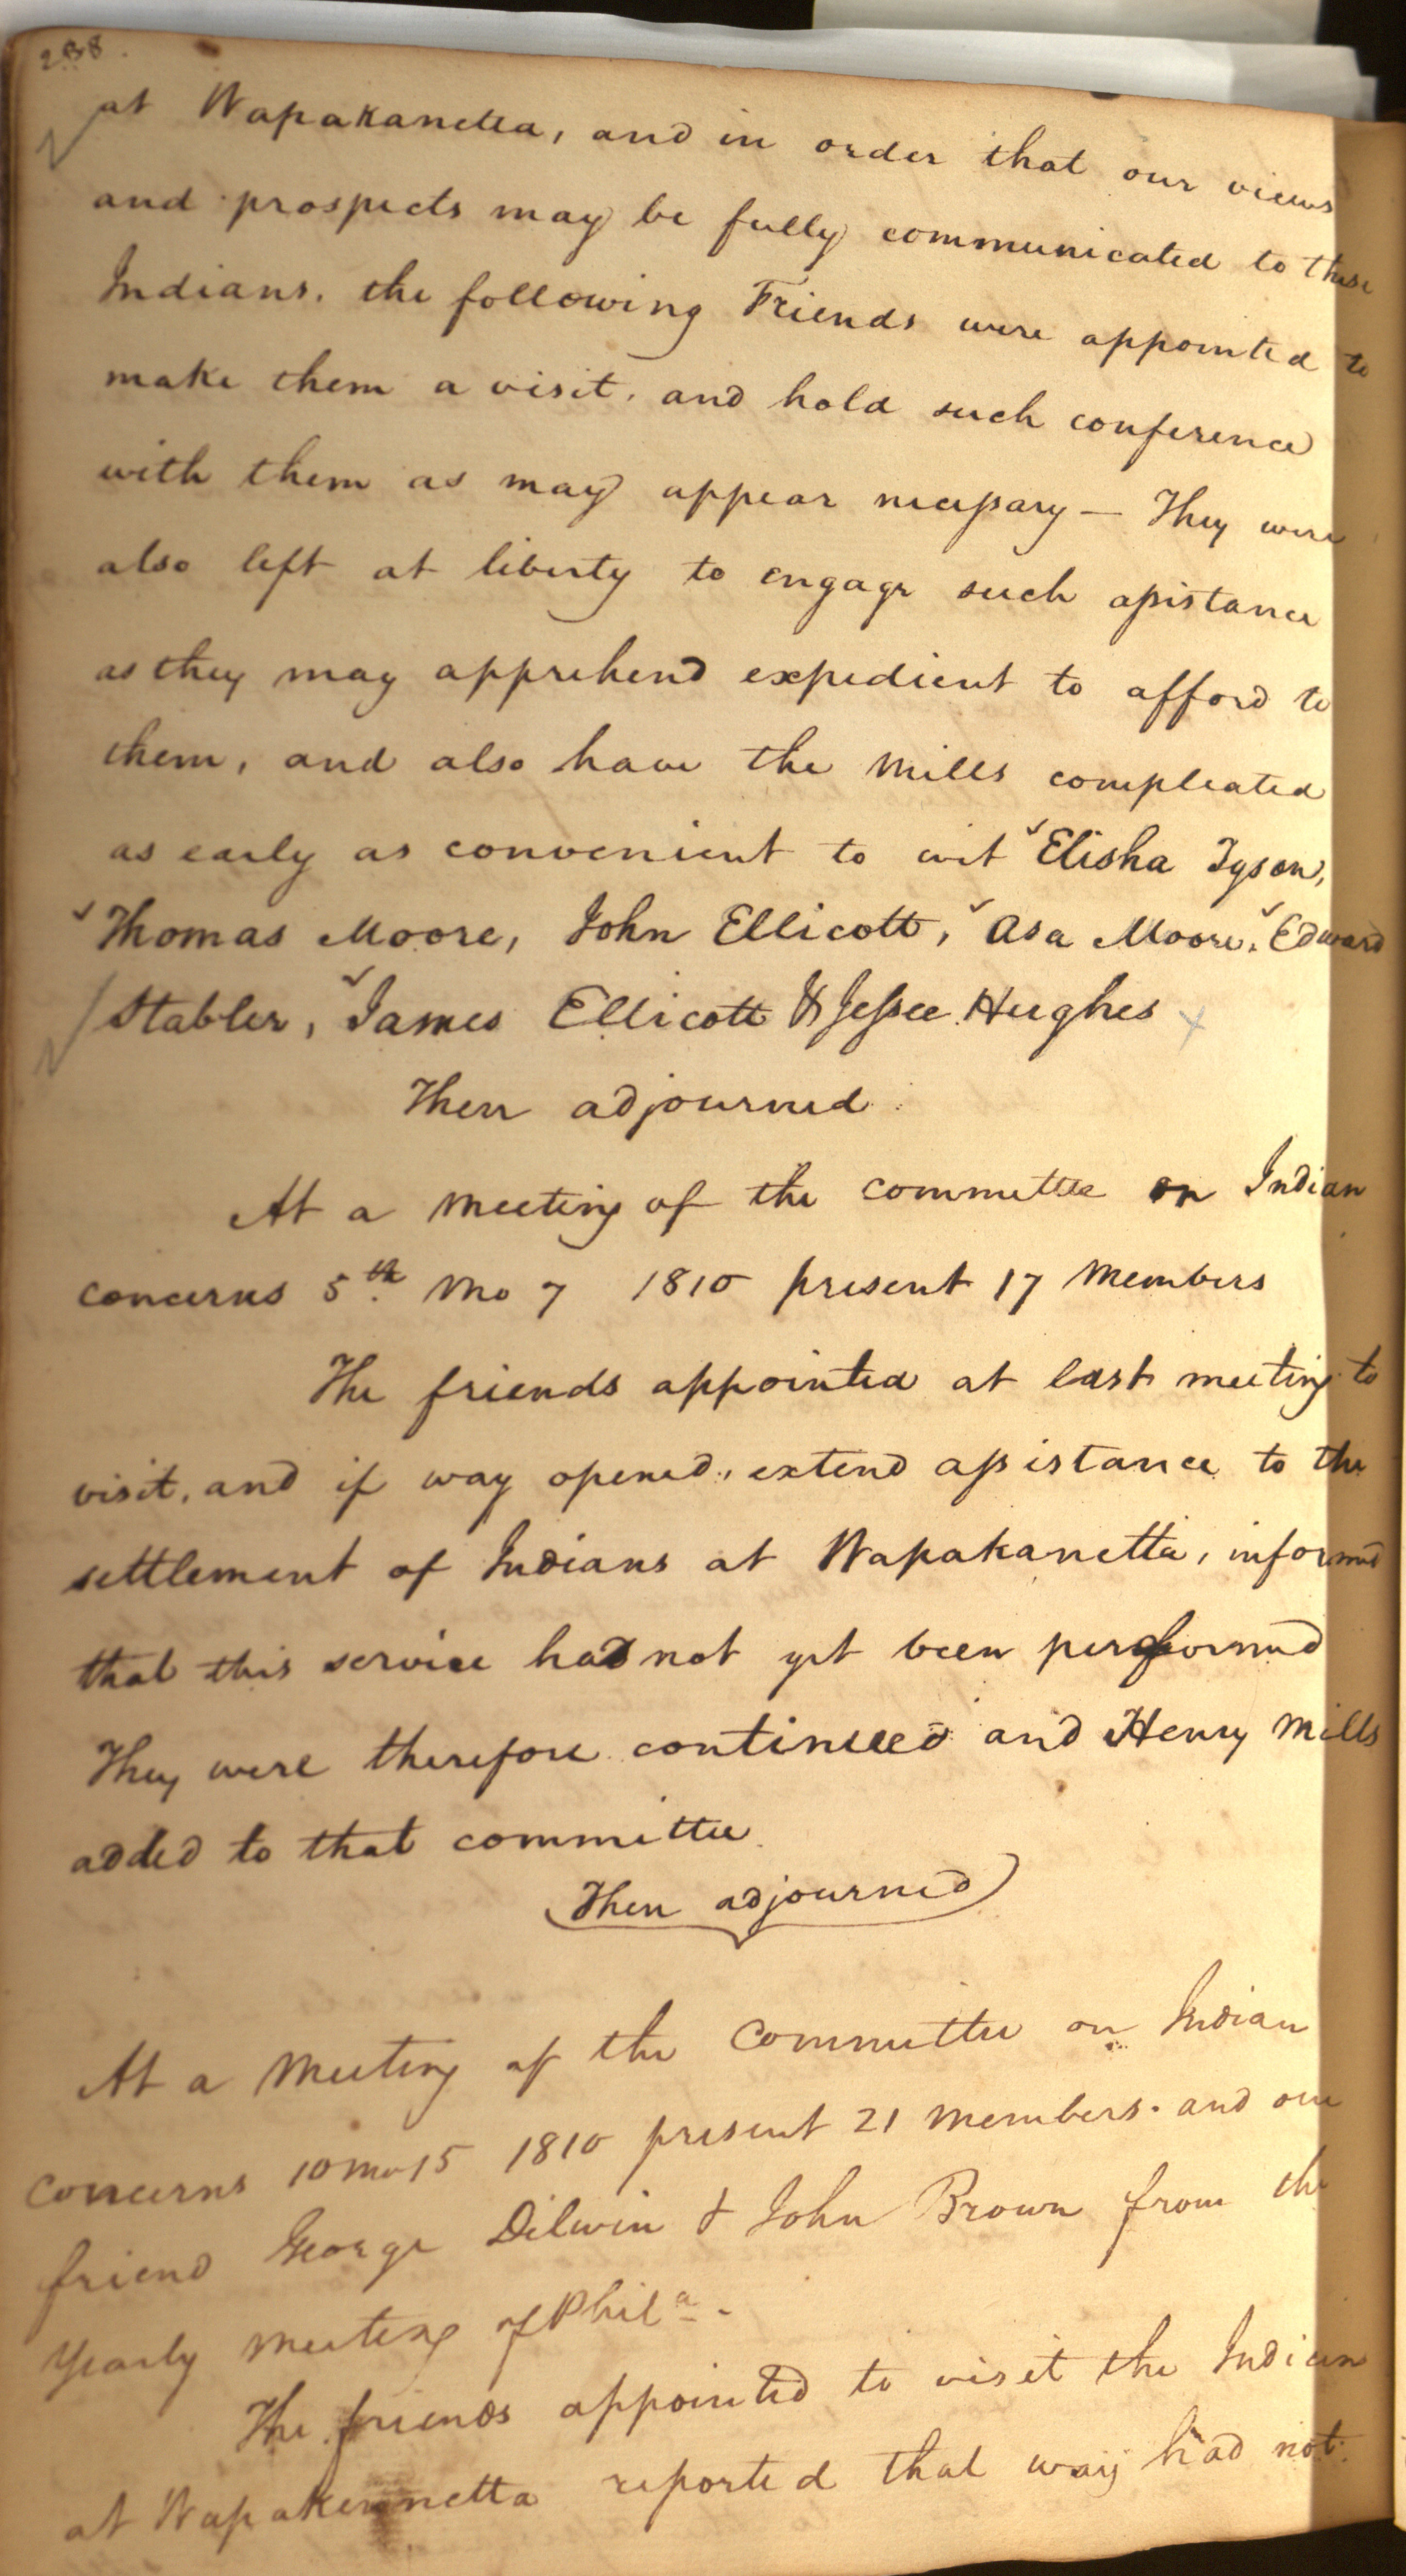 238.
at Wapakanetta, and in order that our views
and prospects may be fully communicated to these
Indians. the following Friends were appointed to
make them a visit, and hold such conference
with them as may appear necessary — They were
also left at liberty to engage such assistance
as they may apprehend expedient to afford to
them, and also have the Mills compleated
as early as convenient to wit Elisha Tyson,
Thomas Moore, John Ellicott, Asa Moore, Edward
Stabler, James Ellicott & Jessee Hughes
Then adjourned.
At a meeting of the committee on Indian
concerns 5th Mo 7 1810 present 17 Members
The friends appointed at last meeting to
visit, and if way opened, extend assistance to the
settlement of Indians at Wapakanetta, informed
that this service had not yet been performed
They were therefore continued and Henry Mills
added to that committee
Then adjourned
At a Meeting of the Committee on Indian
Concerns 10 mo 15 1810 present 21 Members. and our
friend George Dilwin & John Brown from the
Yearly Meeting of Phila.
The friends appointed to visit the Indian
at Wapakennetta reported that way had not